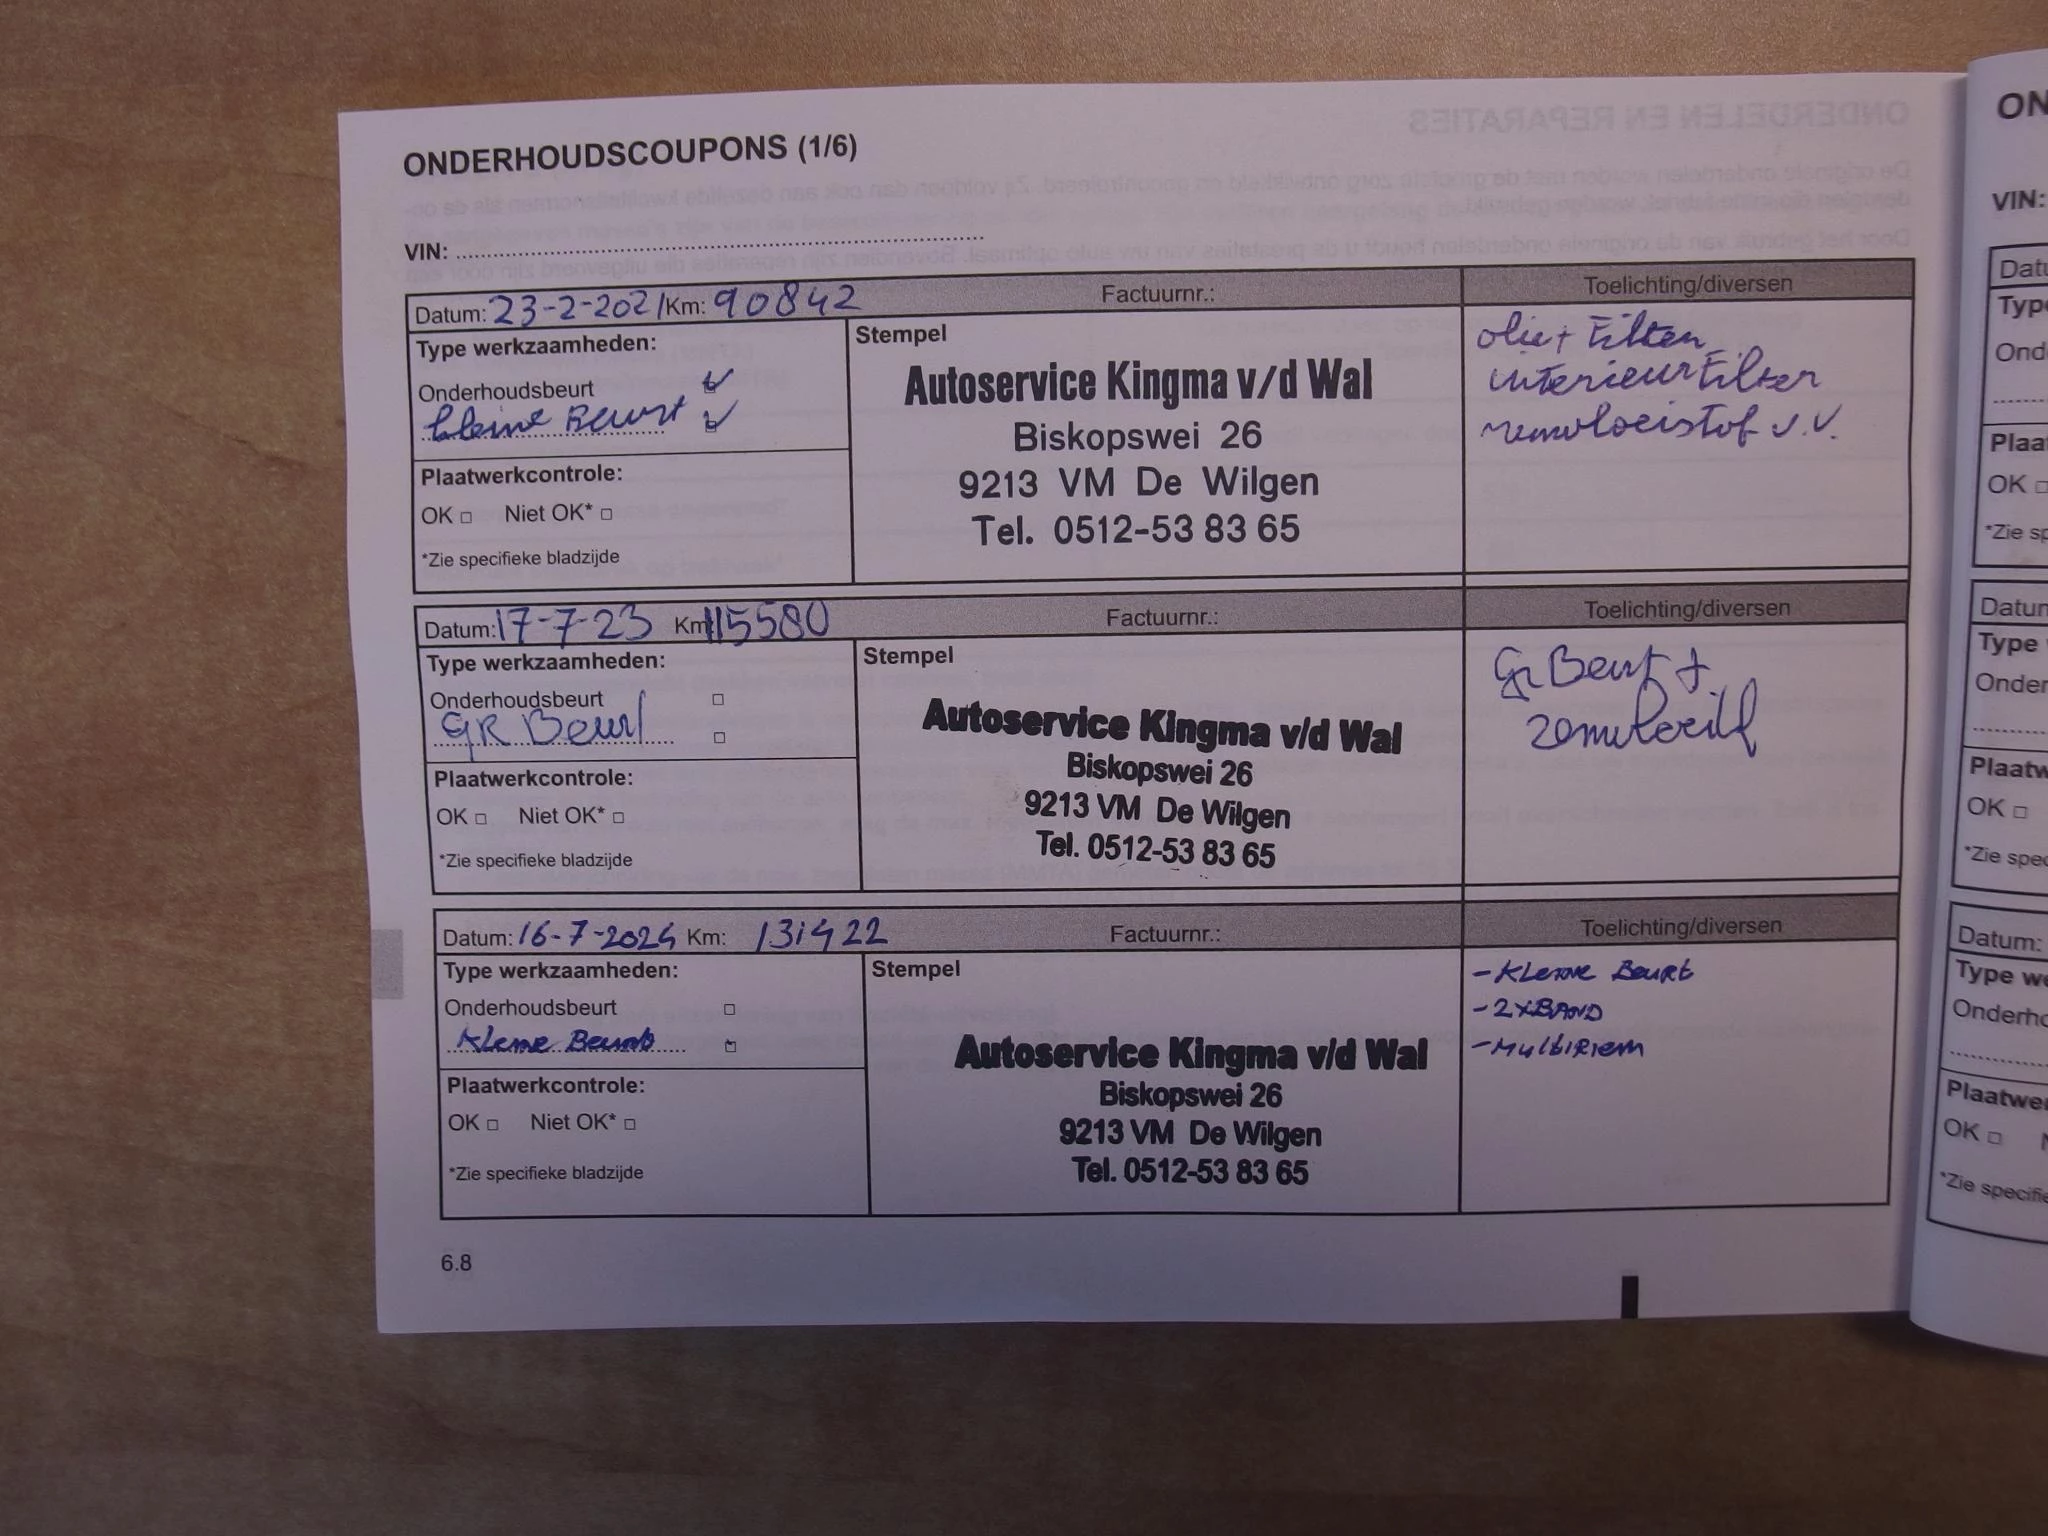 ONDERHOUDSCOUPONS (1/6)
VIN:
Datum: 23-2-2021 Km: 90842 Factuurnr.: Toelichting/diversen
Type werkzaamheden:
Onderhoudsbeurt
kleine Beurt
Plaatwerkcontrole:
OK □ Niet OK* □
*Zie specifieke bladzijde
Stempel
Autoservice Kingma v/d Wal
Biskopswei 26
9213 VM De Wilgen
Tel. 0512-53 83 65
olie + Filter
interieurFilter
remvloeistof v.v.
Datum: 17-7-23 Km: 115580 Factuurnr.: Toelichting/diversen
Type werkzaamheden:
Onderhoudsbeurt □
GR Beurt □
Plaatwerkcontrole:
OK □ Niet OK* □
*Zie specifieke bladzijde
Stempel
Autoservice Kingma v/d Wal
Biskopswei 26
9213 VM De Wilgen
Tel. 0512-53 83 65
Gr Beurt +
Datum: 16-7-2024 Km: 131422 Factuurnr.: Toelichting/diversen
Type werkzaamheden:
Onderhoudsbeurt □
Kleine Beurt □
Plaatwerkcontrole:
OK □ Niet OK* □
*Zie specifieke bladzijde
Stempel
Autoservice Kingma v/d Wal
Biskopswei 26
9213 VM De Wilgen
Tel. 0512-53 83 65
- Kleine Beurt
- 2xBAND
- Multiriem
6.8
VIN: